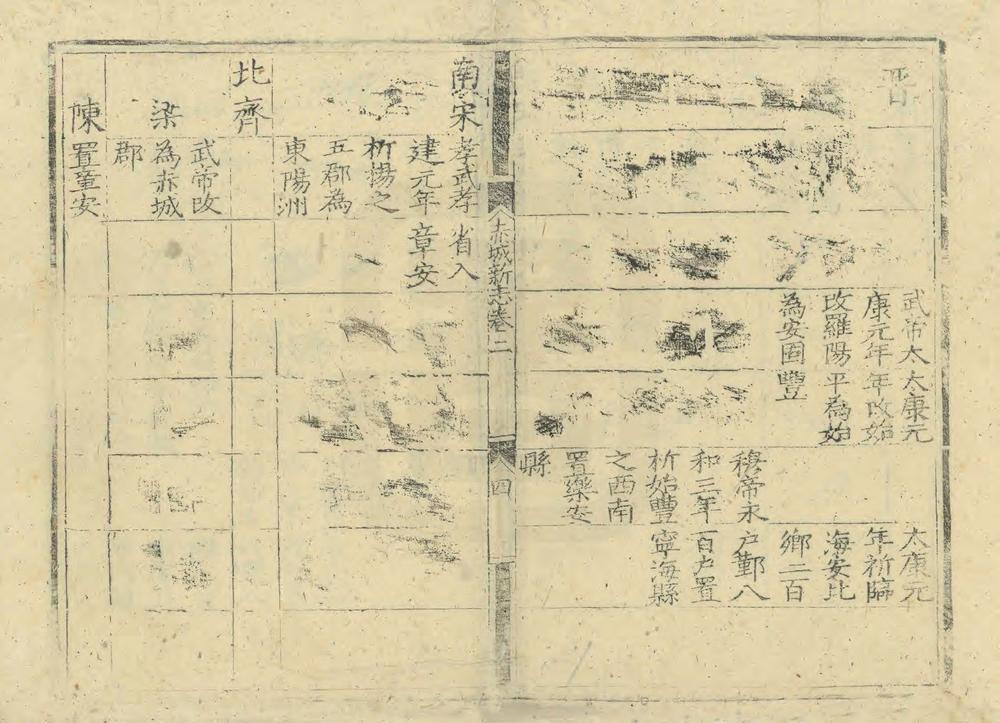 晋
武帝太
康元年
改羅陽
為安固
太康元
年改始
平為始
豐
穆帝永
和三年
析始豐
之西南
置樂安
縣
太康元
年析臨
海安北
鄉二百
戶鄞八
百戶置
寧海縣
赤城新志卷二
四
南宋
孝武孝
建元年
析揚之
五郡為
東陽洲
省入
章安
北齊
梁
武帝改
為赤城
郡
陳
置章安